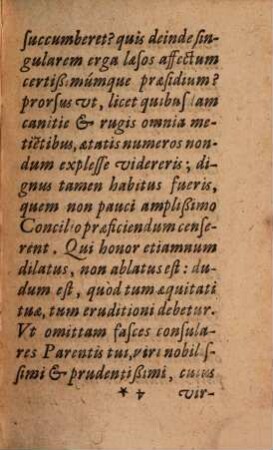 succumberet? quis deinde sin-
gularem erga læsos affectum
certißimúmque præsidium?
prorsus vt, licet quibusdam
canitie & rugis omnia me-
tiētibus, ætatis numeros non-
dum explesse videreris; di-
gnus tamen habitus fueris,
quem non pauci amplißimo
Concilio præficiendum cense-
rent. Qui honor etiamnum
dilatus, non ablatus est: du-
dum est, quòd tum æquitati
tuæ, tum eruditioni debetur.
Vt omittam fasces consula-
res Parentis tui, viri nobilis-
simi & prudentißimi, cuius
* 4 vir-